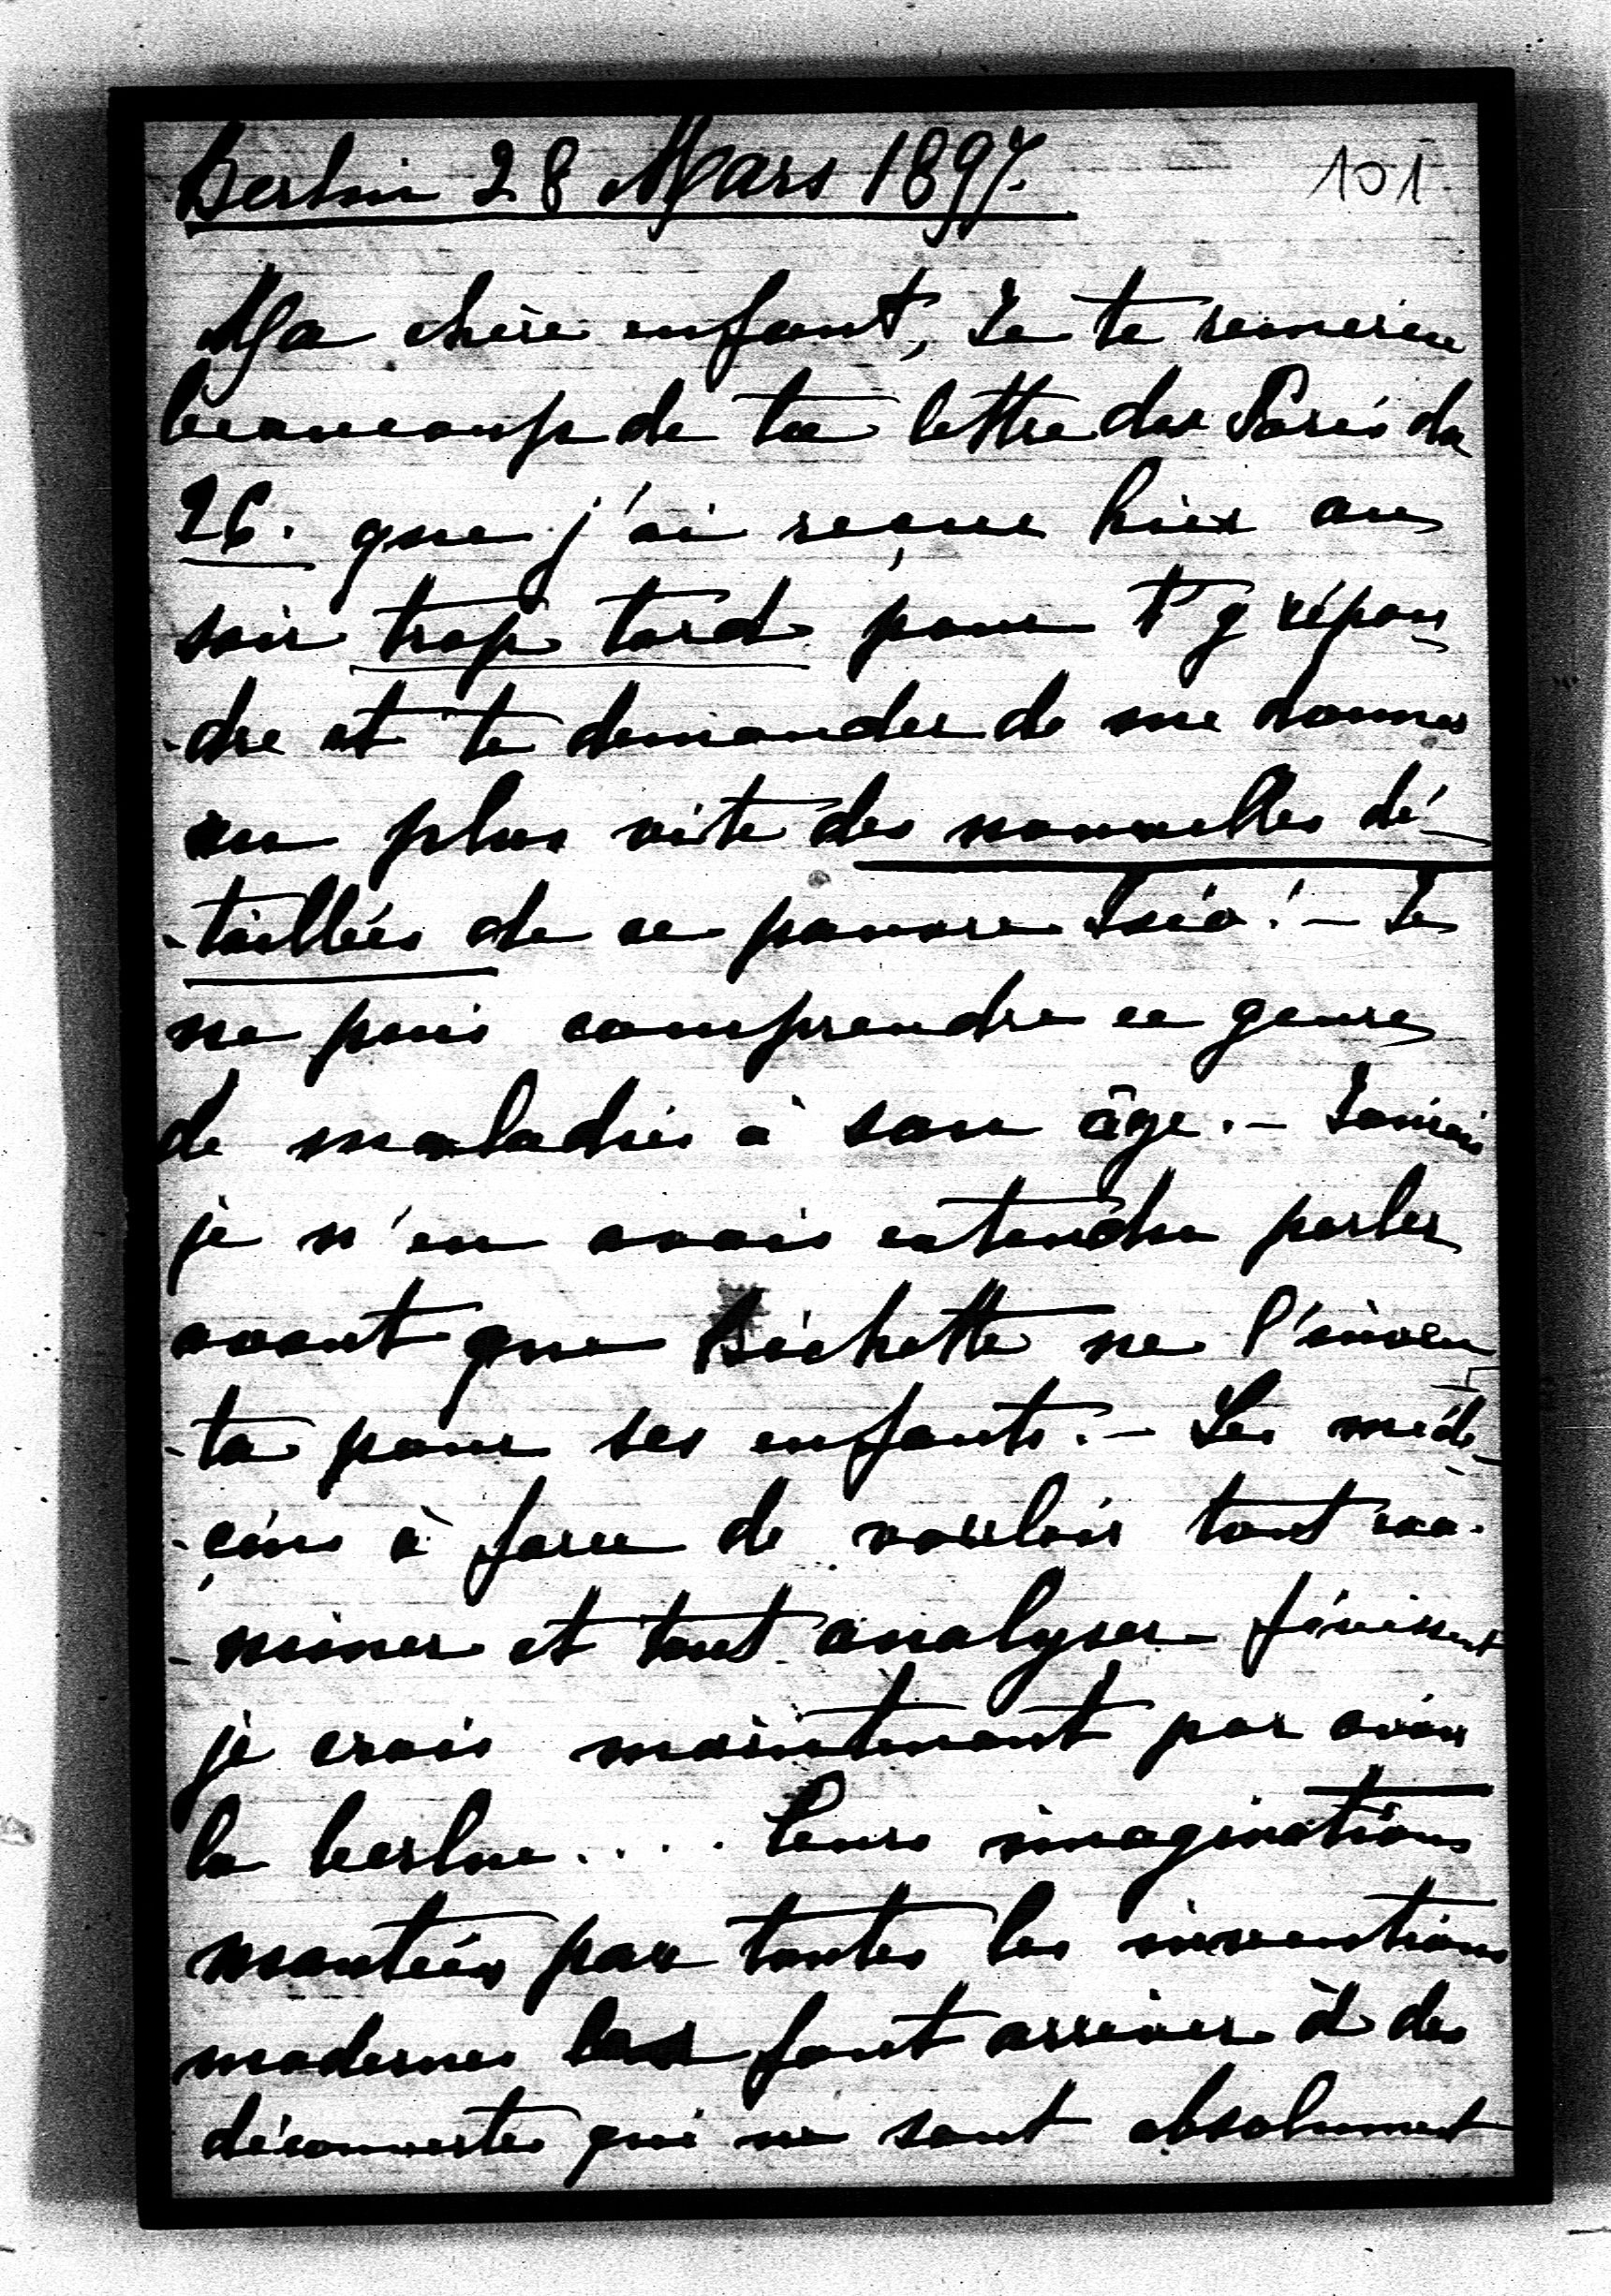 Berlin 28 Mars 1897.
101.
Ma chère enfant, Je te remercie
beaucoup de ta lettre de Paris du
26. que j'ai reçue hier au
soir trop tard pour t'y répon
-dre et te demander de me donner
au plus vite des nouvelles dé-
-taillées de ce pauvre - Je
ne puis comprendre ce genre
de maladies à son âge. - Jamais
je n'en avais entendu parler
avant que Bichette ne l'inven
-ta pour ses enfants. - Les méde-
-çins à force de vouloir tout exa-
-miner et tout analyser finissent
je crois maintenant par avoir
la berlue.... Leurs imaginations
montées par toutes les inventions
modernes les font arriver à des
découvertes qui ne sont absolument